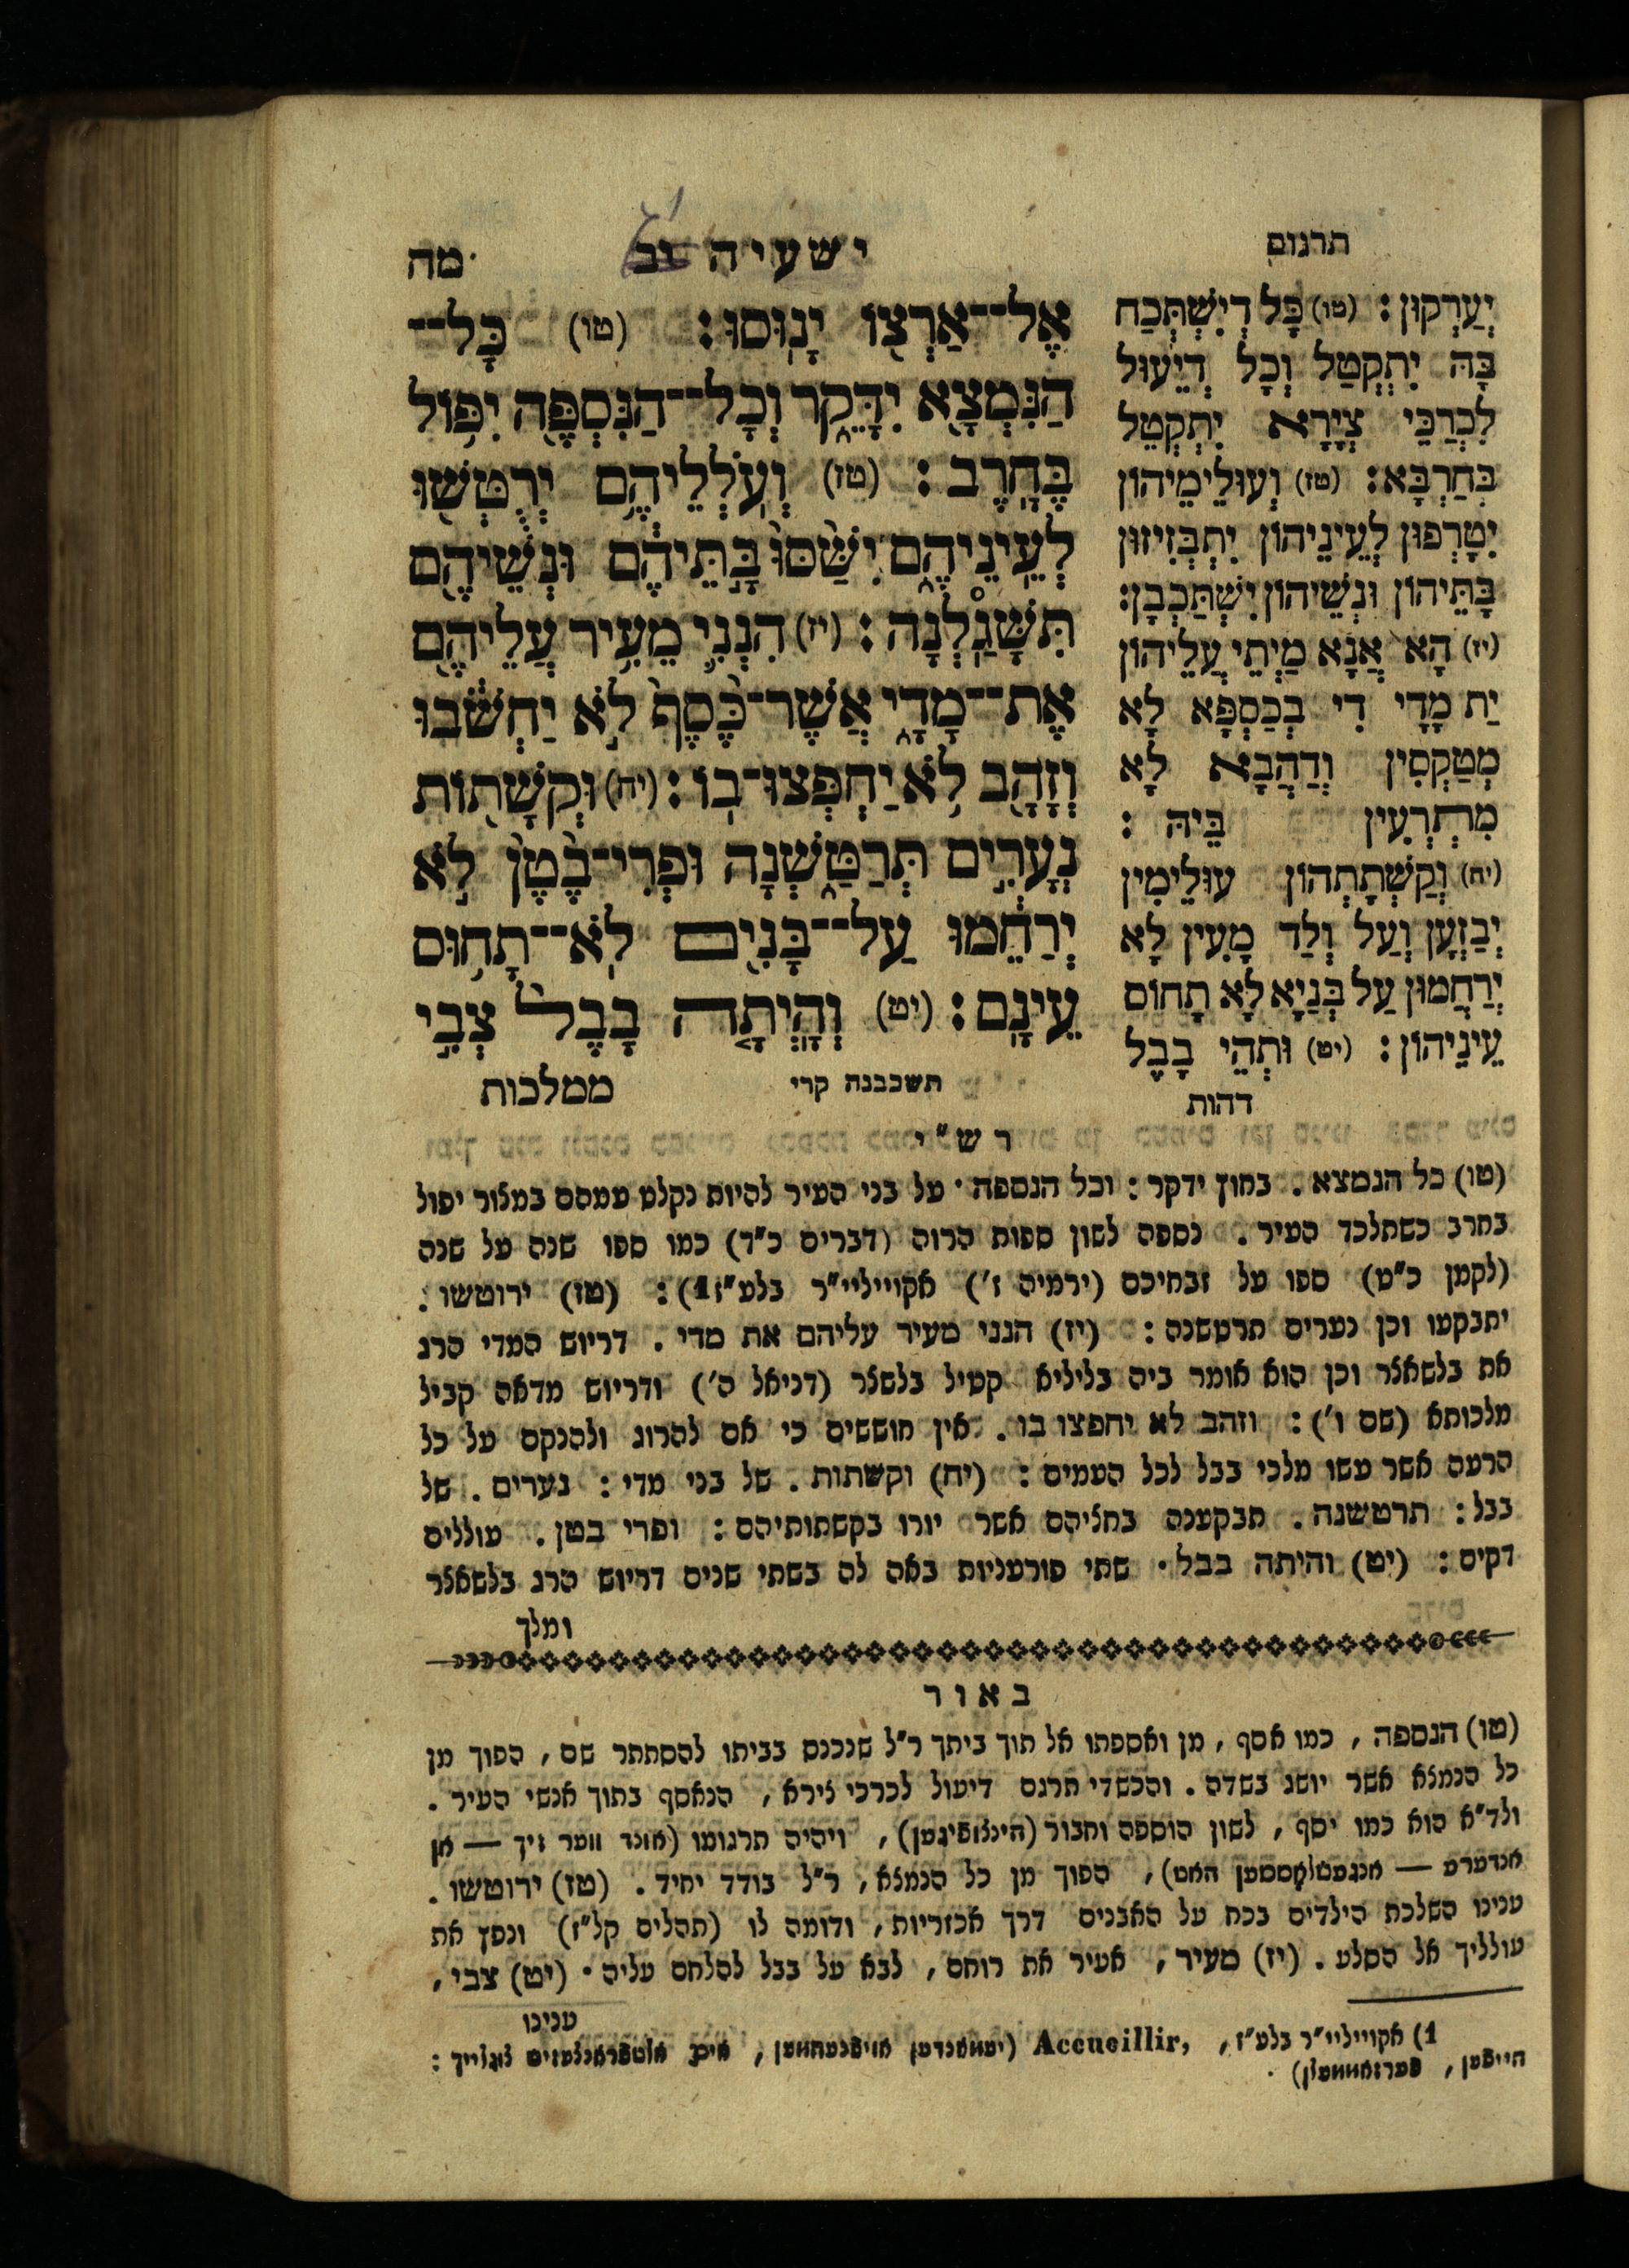 תרגום
ישעיה יב
מה
אֶל־־אַרְצ֖וֹ יָנֽוּסוּ׃ (טו) כָּל־־
הַנִּמְצָ֖א יִדָּקֵ֑ר וְכָל־־הַנִּסְפֶּ֖ה יִפּ֥וֹל
בֶּחָֽרֶב׃ (טז) וְעֹלְלֵיהֶ֥ם יְרֻטְּשׁ֖וּ
לְעֵֽינֵיהֶ֑ם יִשַּׁ֙סּוּ֙ בָּֽתֵּיהֶ֔ם וּנְשֵׁיהֶ֖ם
תִּשָּׁגַֽלְנָה׃ (יז) הִנְנִ֛י מֵעִ֥יר עֲלֵיהֶ֖ם
אֶת־־מָדָ֑י אֲשֶׁר־כֶּ֙סֶף֙ לֹ֣א יַחְשֹׁ֔בוּ
וְזָהָ֖ב לֹ֥א יַחְפְּצוּ־בֽוֹ׃ (יח) וּקְשָׁת֖וֹת
נְעָרִ֣ים תְּרַטַּ֑שְׁנָה וּפְרִי־בֶ֙טֶן֙ לֹ֣א
יְרַחֵ֔מוּ עַל־־בָּנִ֖ים לֹֽא־־תָח֥וּס
עֵינָֽם׃ (יט) וְהָיְתָ֤ה בָבֶל֙ צְבִ֣י
תשכבנה קרי
ממלכות
יְעַרְקוּן׃ (טו) כָּל דְיִשְׁתְּכַח
בָּהּ יִתְקְטַל וְכָל דְיֵעוּל
לִכְרַכֵּי צְיָרָא יִתְקְטֵל
בְּחַרְבָּא׃ (טז) וְעוּלֵימֵיהוֹן
יִטָּרְפוּן לְעֵינֵיהוֹן יִתְבְּזִיזוּן
בָּתֵּיהוֹן וּנְשֵׁיהוֹן יִשְׁתַּכְבָן׃
(יז) הָא אֲנָא מַיְתֵי עֲלֵיהוֹן
יַת מָדָי דִי בְכַסְפָּא לָא
מְטַקְסִין וְדַהֲבָא לָא
מִתְרְעִין בֵּיהּ׃
(יח) וְקַשְׁתָתְהוֹן עוּלֵימִין
יְבַזְעָן וְעַל וְלַד מְעִין לָא
יְרַחֲמוּן עַל בְּנַיָא לָא תָחוֹס
עֵינֵיהוֹן׃ (יט) וּתְהֵי בָבֶל
דהות
רש״י
(טו) כל הנמצא. בחוץ ידקר: וכל הנספה· על בני העיר להיות נקלט עמהם במצור יפול
בחרב כשתלכד העיר. נספה לשון ספות הרוה (דברים כ״ד) כמו ספו שנה על שנה
(לקמן כ״ט) ספו על זבחיכם (ירמיה ז׳) אקויילי״ר בלע״ז 1): (טז) ירוטשו.
יתבקעו וכן נערים תרטשנה: (יז) הנני מעיר עליהם את מדי. דריוש המדי הרג
את בלשאצר וכן הוא אומר ביה בליליא קטיל בלשצר (דניאל ה׳) ודריוש מדאה קביל
מלכותא (שם ו׳): וזהב לא יחפצו בו. אין חוששים כי אם להרוג ולהנקם על כל
הרעה אשר עשו מלכי בבל לכל העמים: (יח) וקשתות. של בני מדי: נערים. של
בבל: תרטשנה. תבקענה בחציהם אשר יורו בקשתותיהם: ופרי בטן. עוללים
דקים: (יט) והיתה בבל· שתי פורעניות באה לה בשתי שנים דריוש הרג בלשאצר
ומלך
באור
(טו) הנספה, כמו אסף, מן ואספתו אל תוך ביתך ר״ל שנכנס בביתו להסתתר שם, הפוך מן
כל הנמצא אשר יושג בשדה. והכשדי תרגם דיעול לכרכי צירא, הנאסף בתוך אנשי העיר.
ולד״א הוא כמו יסף, לשון הוספה וחבור (הינצופיגען), ויהיה תרגומו (אונד ווער זיך — אן
אנדערע — אנגעשלאָססען האט), הפוך מן כל הנמצא, ר״ל בודד יחיד. (טז) ירוטשו.
ענינו השלכת הילדים בכח על האבנים דרך אכזריות, ודומה לו (תהלים קל״ז) ונפץ את
עולליך אל הסלע. (יז) מעיר, אעיר את רוחם, לבא על בבל להלחם עליה· (יט) צבי,
ענינו
1) אקויילי״ר בלע״ז, Accueillir, (יעמאנדען אויפנעהמען, אים אלטפראנצעזיש צוגלייך:
הייפען, פערזאממעלן).